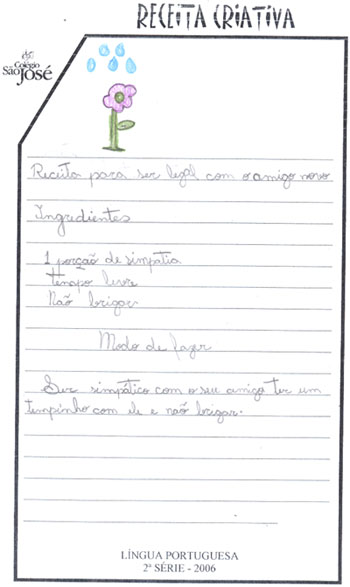 RECEITA CRIATIVA
Colégio
São José
Receita para ser legal com o amigo novo
Ingredientes
1 porção de simpatia
tempo livre
Não brigar
Modo de fazer
Ser simpático com o seu amigo ter um
tempinho com ele e não brigar.
LÍNGUA PORTUGUESA
2ª SÉRIE - 2006